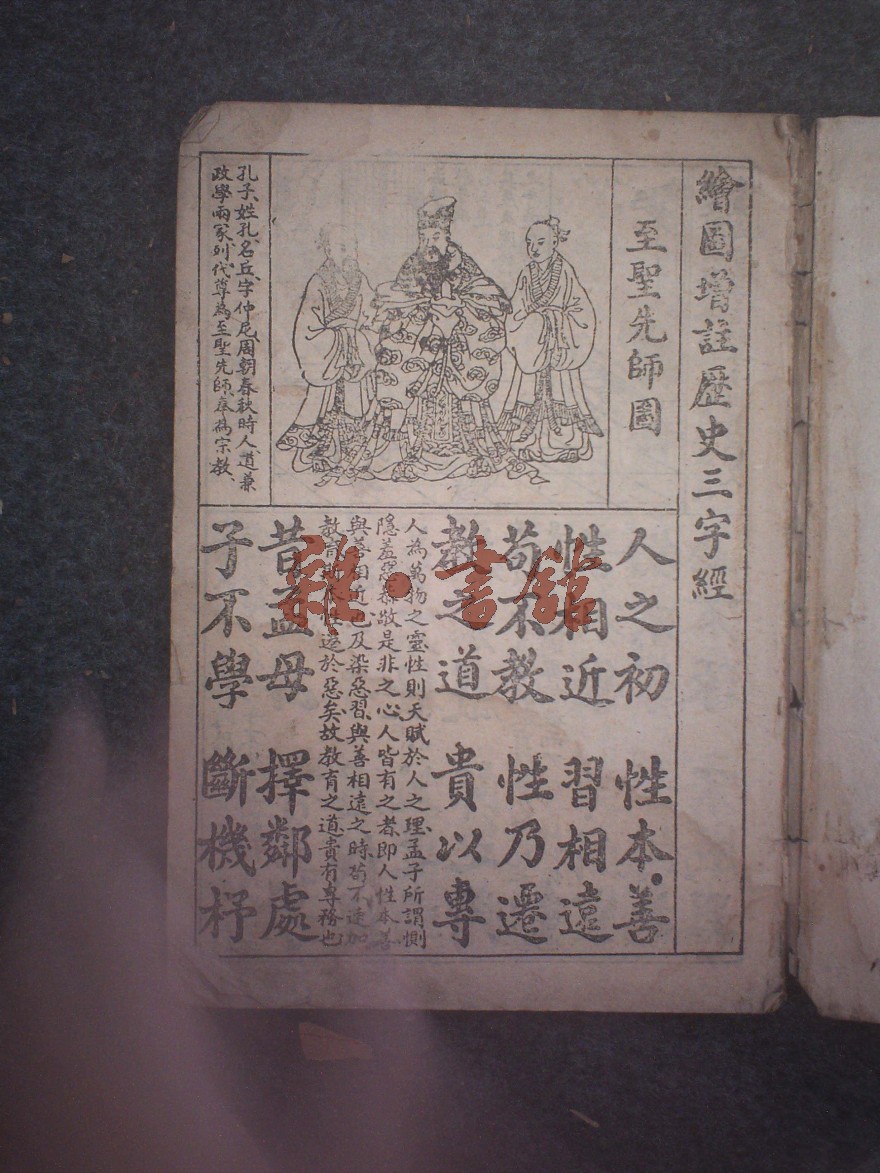 繪圖增註歷史三字經
至聖先師圖
孔子、姓孔、名丘、字仲尼、周朝春秋時人、道兼
政學兩家、列代尊為至聖先師、奉為宗教、
人之初 性本善
性相近 習相遠
苟不教 性乃遷
教之道 貴以專
人為萬物之靈性則天賦於人之理孟子所謂惻
隱羞惡恭敬是非之心人皆有之者即人性本善
與善相近也及染惡習與善相遠之時苟不速加
教育 於惡矣故教育之道貴有專務也
昔孟母 擇鄰處
子不學 斷機杼
雜·書館